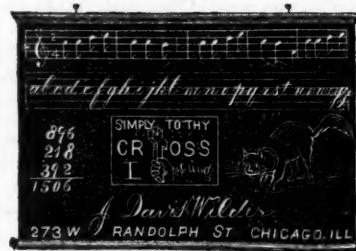 abcdefghijkl mnopqrst uvwxyz
896
218
392
1506
SIMPLY TO THY
CR OSS
I cling
J. David Wilder
273 W RANDOLPH ST CHICAGO. ILL